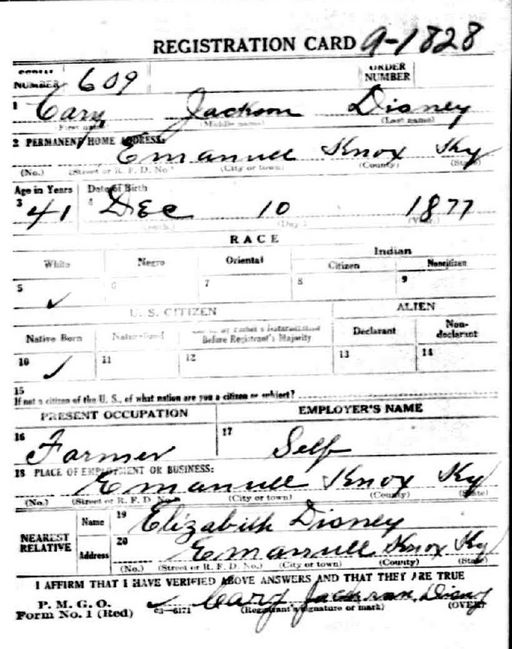 REGISTRATION CARD A-1828
SERIAL NUMBER 609 ORDER NUMBER
1 Cary Jackson Disney
(First name) (Middle name) (Last name)
2 PERMANENT HOME ADDRESS:
Emanuell Knox Ky
(No.) (Street or R. F. D. No.) (City or town) (County) (State)
Age in Years Date of Birth
3 41 4 Dec 10 1877
(Month.) (Day.) (Year.)
RACE
White Negro Oriental Indian
Citizen Noncitizen
5 ✓ 6 7 8 9
U. S. CITIZEN ALIEN
Native Born Naturalized Citizen by Father's Naturalization Before Registrant's Majority Declarant Non-declarant
10 ✓ 11 12 13 14
15
If not a citizen of the U. S., of what nation are you a citizen or subject?
PRESENT OCCUPATION EMPLOYER'S NAME
16 Farmer 17 Self
18 PLACE OF EMPLOYMENT OR BUSINESS:
Emanuell Knox Ky
(No.) (Street or R. F. D. No.) (City or town) (County) (State)
NEAREST RELATIVE
Name 19 Elizabeth Disney
Address 20 Emanuell Knox Ky
(No.) (Street or R. F. D. No.) (City or town) (County) (State)
I AFFIRM THAT I HAVE VERIFIED ABOVE ANSWERS AND THAT THEY ARE TRUE
P. M. G. O.
Form No. 1 (Red) 03-6171 ✓ Cary Jackson Disny
(Registrant's signature or mark) (OVER)